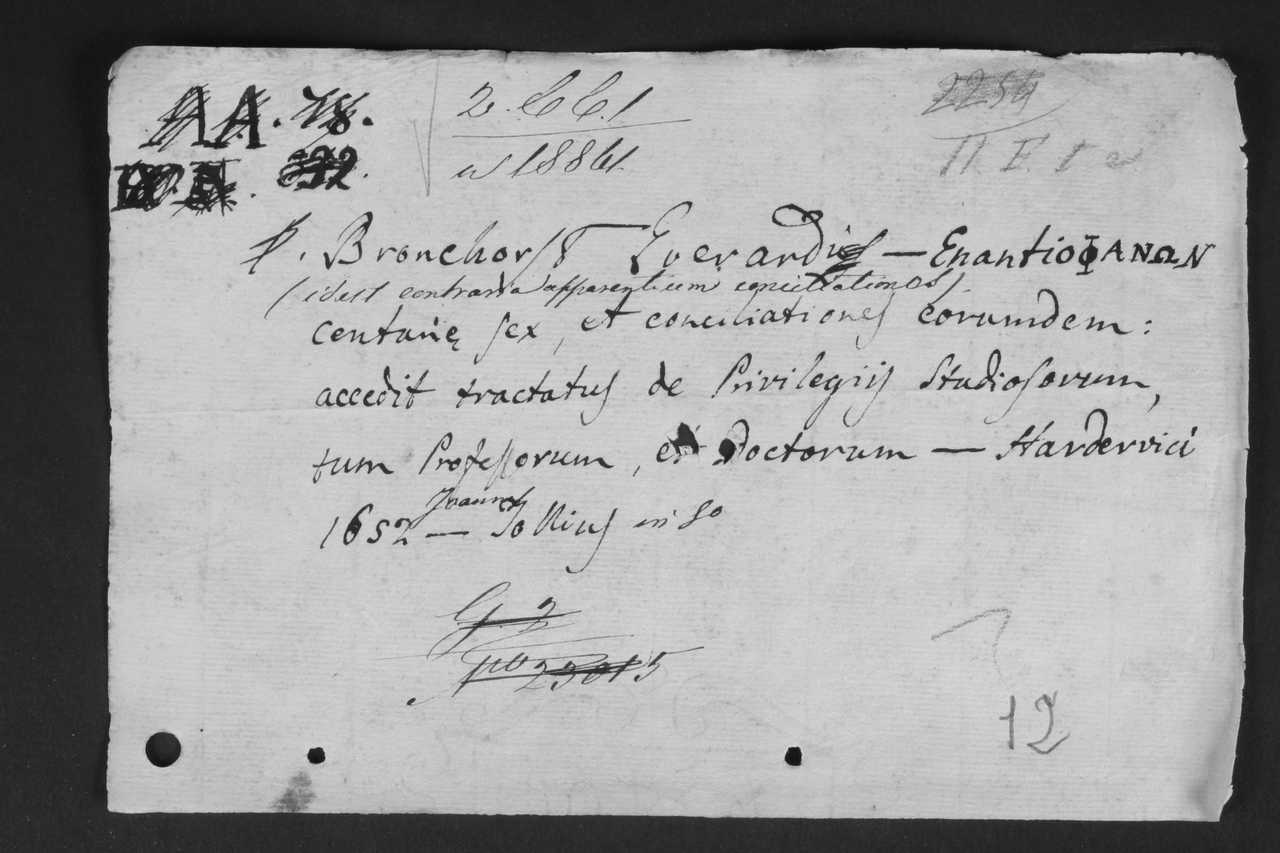 AA. 78.
2. C C. 1
2254
n 18841.
II. E. 1 a
Bronchorst Everardi — EnantioΦΑΝΩΝ
(idest contraria apparentium conciliationes).
centurię sex, et conciliationes eorumdem:
accedit tractatus de Privilegijs Studiosorum,
tum Professorum, et Doctorum — Hardervici
1652 — Joannes Tollius in 8o
G. 2
no 23015
12